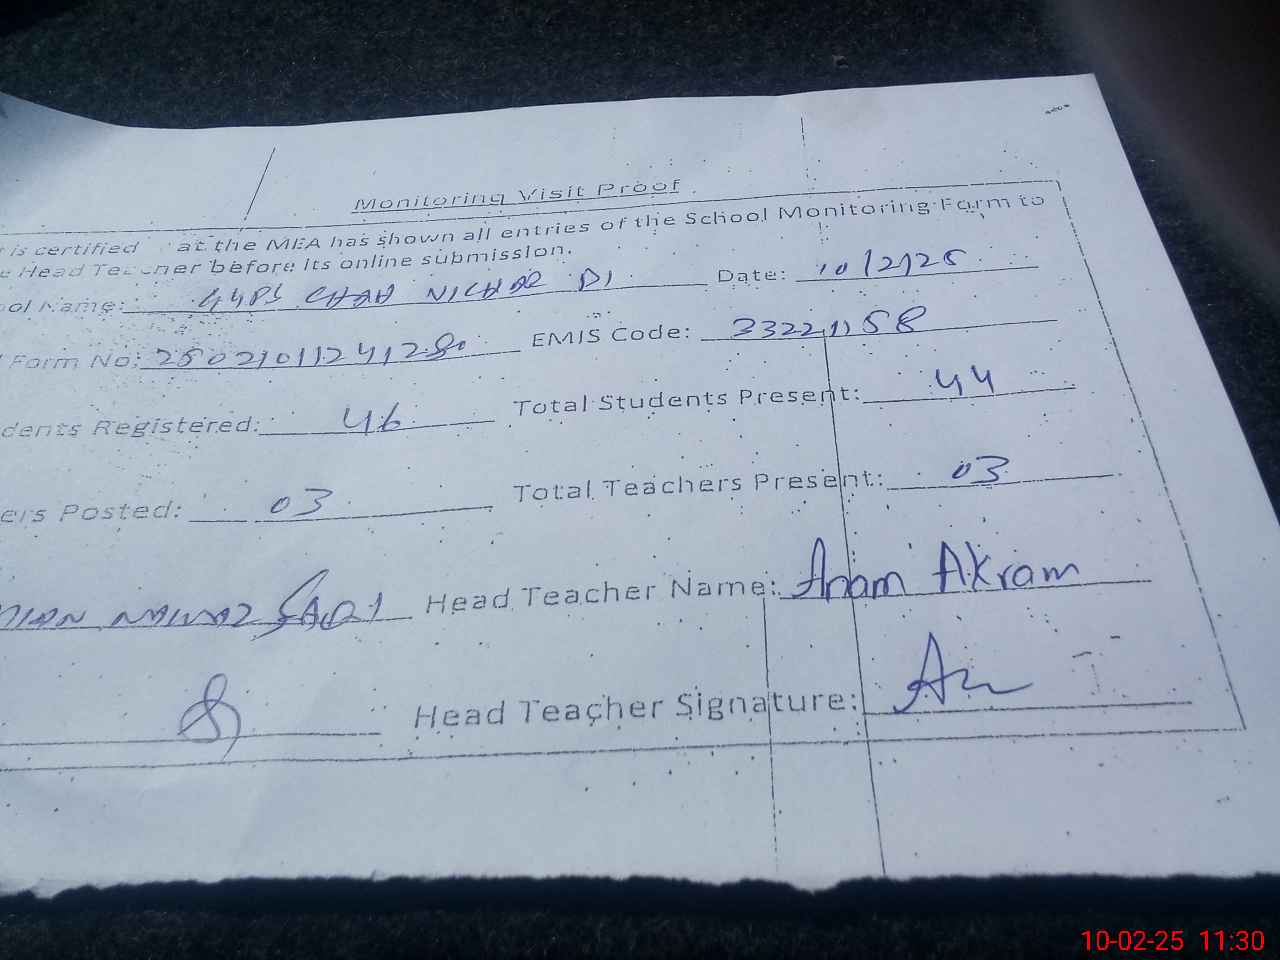 Monitoring Visit Proof
is certified at the MEA has shown all entries of the School Monitoring Form to
e Head Teacher before its online submission.
ool Name: GGPS CHAH NICHAR DI Date: 10/2/25
Form No: 25021011241280 EMIS Code: 33221158
dents Registered: 46 Total Students Present: 44
ers Posted: 03 Total Teachers Present: 03
NAWAZ SAQI Head Teacher Name: Anam Akram
Head Teacher Signature:
10-02-25 11:30